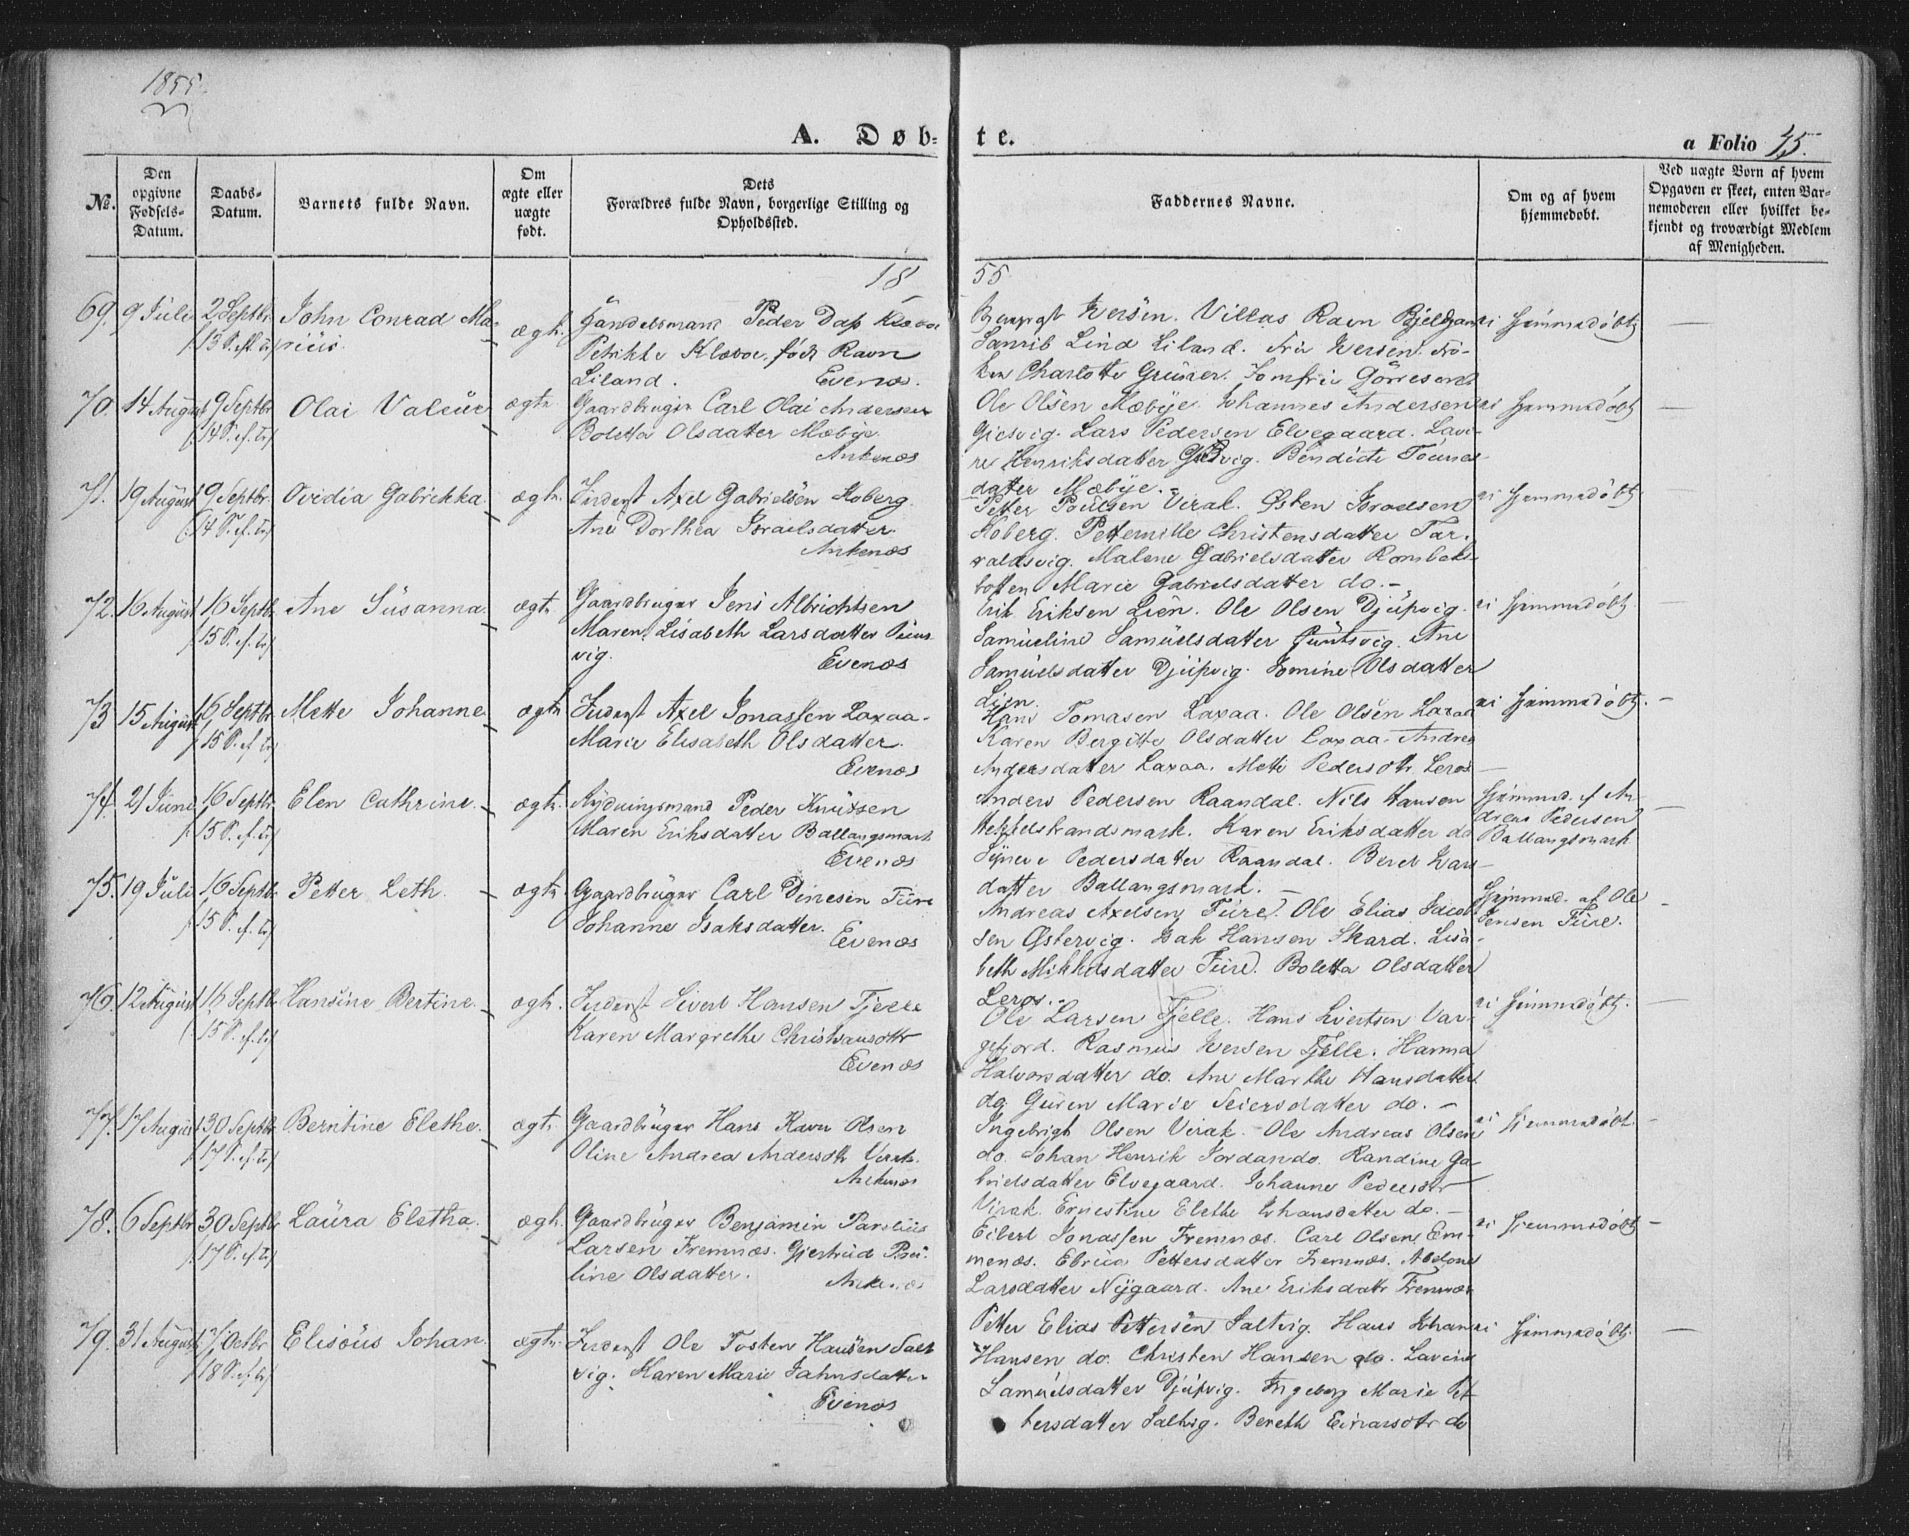 1855.
A. Døb-
te.
a Folio 45.
№.
Den
opgivne
Fødsels-
Datum.
Daabs-
Datum.
Barnets fulde Navn.
Om
ægte eller
uægte
født.
Dets
Forældres fulde Navn, borgerlige Stilling og
Opholdssted.
Faddernes Navne.
Om og af hvem
hjemmedøbt.
Ved uægte Børn af hvem
Opgaven er skeet, enten Bar-
nemoderen eller hvilket be-
kjendt og troværdigt Medlem
af Menigheden.
18
55
69. 9 Juli 2 Septbr. John Conrad Ma- ægte. Handelsmand Peder Dass Klæboe
13 S. ef. tr. ricius.
Petrikke Klæboe, født Ravn
Liland. Evenæs.
Iversen. Villas Ravn
Lind Liland. Frü Iversen. Frö-
ken Charlotte Grüner. Jomfrü Görresen
ei hjemmedøbt
70. 14 August 9 Septbr. Olai Valeür ægte. Gaardbrüger Carl Olai Andersen
14 S. ef. tr. Boletta Olsdatter Mæbye.
Ankenæs
Ole Olsen Mæbye. Johannes Andersen
Gjesvig. Lars Pedersen Elvegaard. Lavi-
ne Henriksdatter Benedicte Tomas-
datter Mæbye.
ei hjemmedøbt
71. 19 August 9 Septbr. Ovidia Gabrikka. ægte. Inderst Axel Gabrielsen Hoberg.
14 S. ef. tr. Ane Dorthea Israelsdatter.
Ankenæs
Petter Poülsen Virak. Østen Isradsen
Hoberg. Petternille Christensdatter Tar-
raldsvig. Malene Gabrielsdatter Rombaks-
botten Marie Gabrielsdatter do.
ei hjemmedøbt
72. 16 August 16 Septbr. Ane Süsanna. ægte. Gaardbrüger Jens Albrichtsen
15 S. ef. tr. Maren Lisabeth Larsdatter
vig. Evenæs
Erik Eriksen Lien. Ole Olsen Djüpvig.
Samüeline Samüelsdatter Ane
Samüelsdatter Djüpvig. Jomine Olsdatter
Lien.
ei hjemmedøbt.
73 15 August 16 Septbr. Mette Johanne. ægte Inderst Axel Jonassen Laxaa.
15 S. ef. tr. Marie Elisabeth Olsdatter.
Evenæs
Hans Tomasen Laxaa. Ole Olsen Laxaa
Karen Bergitte Olsdatter Laxaa. Andrea
Andersdatter Laxaa. Mette Pedersdtr Leros
ei hjemmedøbt.
74. 21 Jüne 16 Septbr. Elen Cathrine. ægte. Rydningsmand Peder Knütsen
15 S. ef. tr. Maren Eriksdatter Ballangsmark
Evenæs
Anders Pedersen Raandal. Nils Hansen
Karen Eriksdatter do
Pedersdatter Raandal. Beret Lars-
datter Ballangsmark.
hjemmed. af An-
dreas Pedersen
Ballangsmark
75. 19 Juli 16 Septbr. Petter Leth. ægte Gaardbrüger Carl Dinesen Füre
15 S. ef. tr. Johanne Isaksdatter.
Evenæs
Andreas Axelsen Füre. Ole Elias Jacob-
sen Østervig. Isak Hansen Skard. Lisa-
beth Mikkelsdatter Füre. Boletta Olsdatter
Leros.
Hjemmed. af Ole
Jensen Füre.
76. 12 August 16 Septbr. Hansine Bertine. ægte. Inderst Sivert Hansen Fjelle
15 S. ef. tr. Karen Margrethe Christiansdtr
Evenæs
Ole Larsen Fjelle. Hans Sivertsen Var-
gefjord. Rasmus Iversen Fjelle. Hanna
Halvorsdatter do. Ane Marthe Hansdatter
og Guren Marie Seiersdatter do.
ei hjemmedøbt.
77. 17 August 30 Septbr. Berntine Elethe. ægte Gaardbrüger Hans Ravn Olsen
17 S. ef. tr. Oline Andrea Andersdtr Virak.
Ankenæs
Ingebrigt Olsen Virak. Ole Andreas Olsen
do. Johan Henrik Jordan do. Randine Ga-
brielsdatter Elvegaard. Johanne Pedersdtr
Virak. Ernestine Elethe Johansdatter do.
ei hjemmedøbt.
78. 6 Septbr 30 Septbr Laüra Eletha. ægte. Gaardbrüger Benjamin Parelius
17 S. ef. tr. Larsen Fremnæs. Gjertrüd Paü-
line Olsdatter. Ankenæs
Eilert Jonassen Fremnæs. Carl Olsen Em-
menæs. Pettersdatter Fremnæs. Abelone
Larsdatter Nygaard. Ane Eriksdatr Fremnæs
ei hjemmedøbt
79. 31 August 7 Octbr. Elisoüs Johan. ægte. Inderst Ole Tosten Hansen Salt-
18 S. ef. tr. vig. Karen Marie Jahnsdatter
Evenæs
Petter Elias Pettersen Saltvig. Hans Johan
Hansen do. Christen Hansen do. Lavine
Samüelsdatter Djüpvig. Ingeborg Marie Pet-
tersdatter Saltvig. Bereth Einarsdtr do
ei hjemmedøbt.